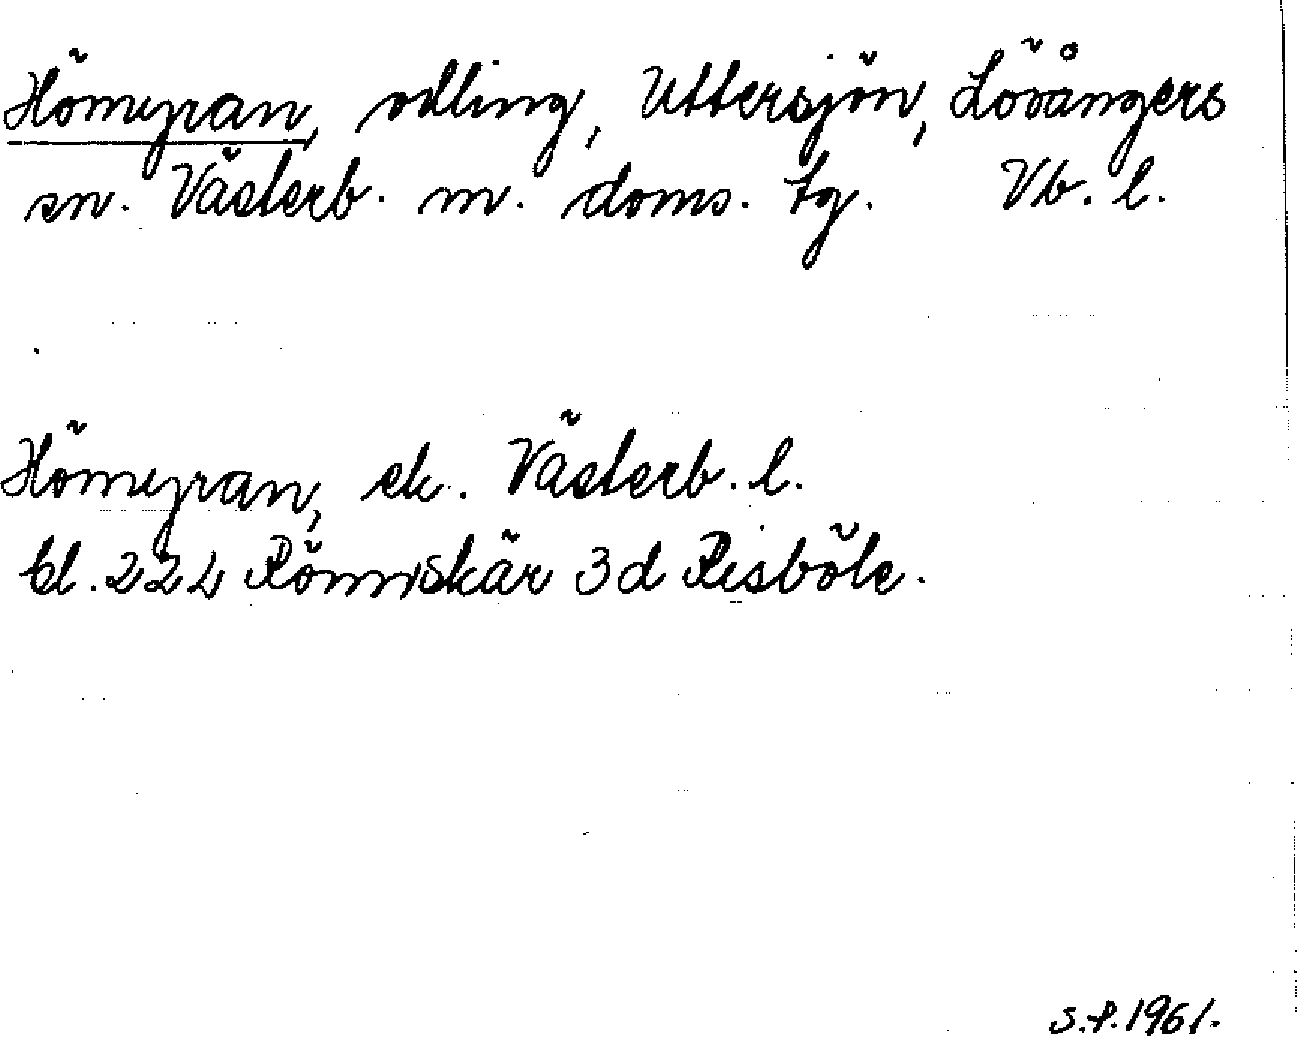 Hömyran, odling, Uttersjön, Lövångers
sn. Västerb. m. doms. tg. Vb. l.
Hömyran, ek. Västerb. l.
bl. 222 Rönnskär 3d Risböle.
S.P. 1961.